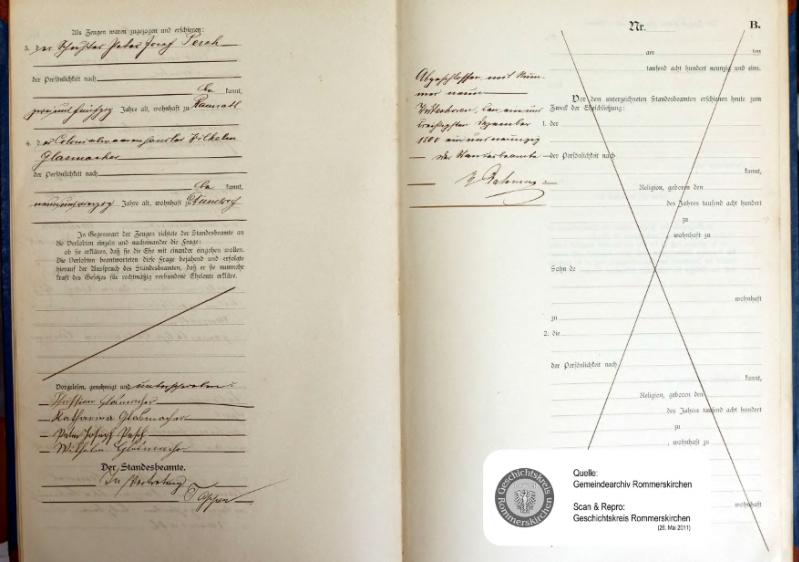 Als Zeugen waren zugezogen und erschienen:
3. der Schuster Peter Josef Pesch
der Persönlichkeit nach
kannt,
zweiundfünfzig Jahre alt, wohnhaft zu Ramrath
4. der Colonialwaarenhändler Wilhelm
Glasmacher
der Persönlichkeit nach
kannt,
neunundvierzig Jahre alt, wohnhaft zu
In Gegenwart der Zeugen richtete der Standesbeamte an
die Verlobten einzeln und nacheinander die Frage:
ob sie erklären, daß sie die Ehe mit einander eingehen wollen.
Die Verlobten beantworteten diese Frage bejahend und erfolgte
hierauf der Ausspruch des Standesbeamten, daß er sie nunmehr
kraft des Gesetzes für rechtmäßig verbundene Eheleute erkläre.
Vorgelesen, genehmigt und unterschrieben:
Glasmacher
Katharina Glasmacher
Peter Josef Pesch
Wilhelm Glasmacher
Der Standesbeamte.
In Vertretung
Abgeschlossen mit Num-
mer neun
den ein und
dreißigsten Dezember
1800 ein und neunzig
Der Standesbeamte
Nr. B.
am ten
tausend acht hundert neunzig und eins.
Vor dem unterzeichneten Standesbeamten erschienen heute zum
Zweck der Eheschließung:
1. der
der Persönlichkeit nach
kannt,
Religion, geboren den
des Jahres tausend acht hundert
zu
, wohnhaft zu
Sohn de
wohnhaft
zu
2. die
der Persönlichkeit nach
kannt,
Religion, geboren den
des Jahres tausend acht hundert
zu
, wohnhaft zu
wohnhaft
Geschichtskreis
Rommerskirchen
Quelle:
Gemeindearchiv Rommerskirchen
Scan & Repro:
Geschichtskreis Rommerskirchen
(26. Mai 2011)